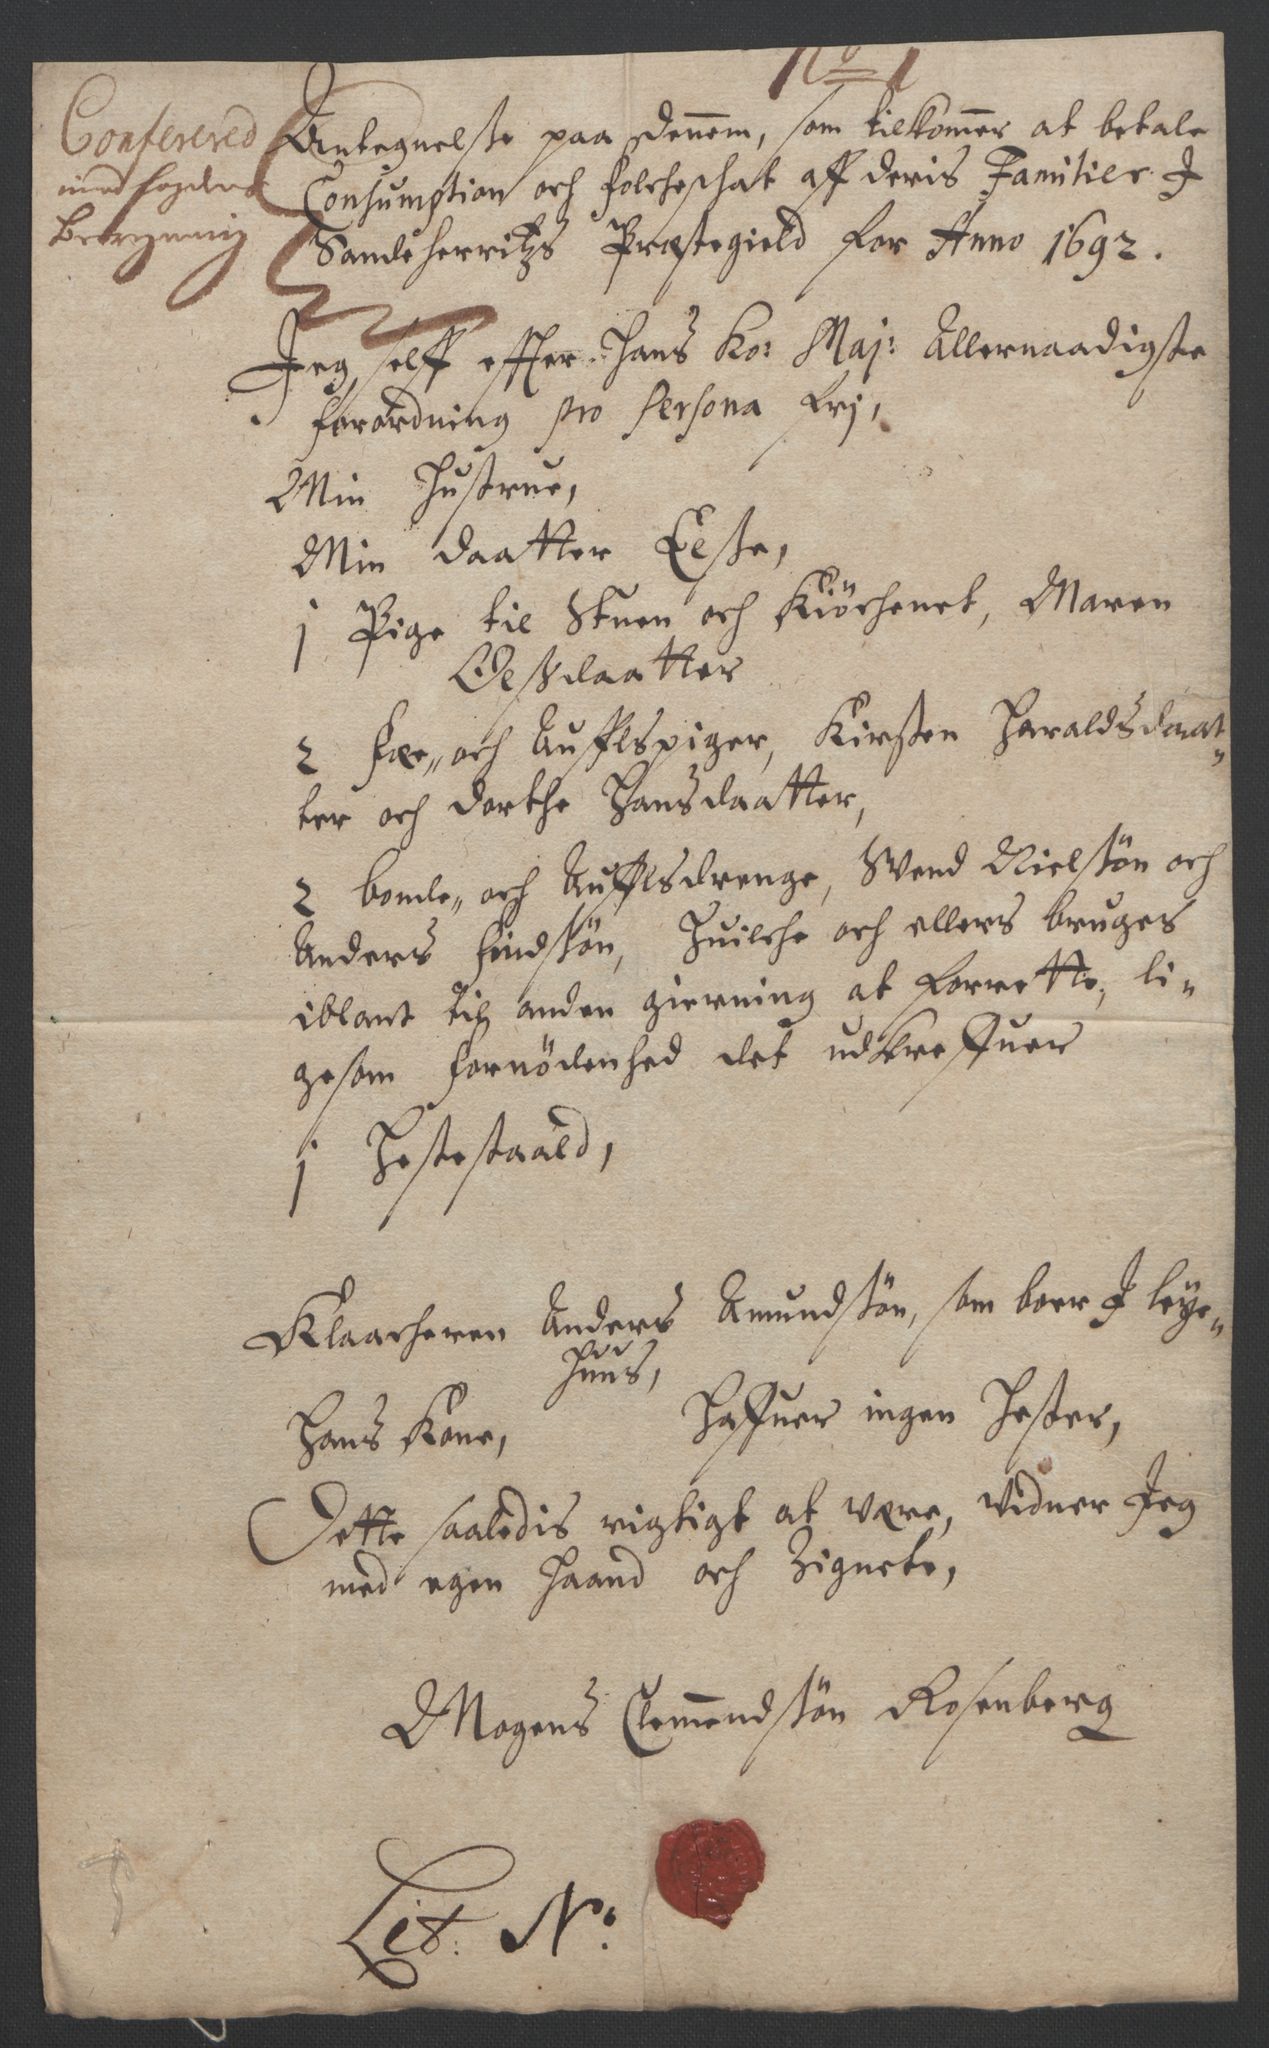 No 1
Conferered
med fogdens
Beregning
Antegnelse paa dennem, som tilkommer at betale
Consumption och folcheschat aff deris Familier I
Sandeherritzs Præstegield for Anno 1692.
Jeg self effter Hans Ko: Maj: Allernaadigste
forordning pro Persona fri,
Min Hustrue,
Min daatter Else,
1 Pige til Stuen och Kiöchenet, Maren
Olsdaatter
2 fæe„ och Auffls piger, Kirsten Haraldsdaat„
ter och dorthe Hansdaatter,
2 bonde„ och Aufflsdrenge, Svend Nielsön och
Anders findsön, Huilche och ellers bruges
iblant til anden gierning at forrette, li„
gesom fornödenhed det udkreffuer
1 Hestestaald,
Klaacheren Anders Amundsön, som boer I leÿe„
Huus,
Hans Kone, Haffuer ingen Hester,
Dette saaledis rigtigt at være, vidner Jeg
med egen Haand och Zignete,
Mogens Clemmendsön Rosenberg
Lit. No: